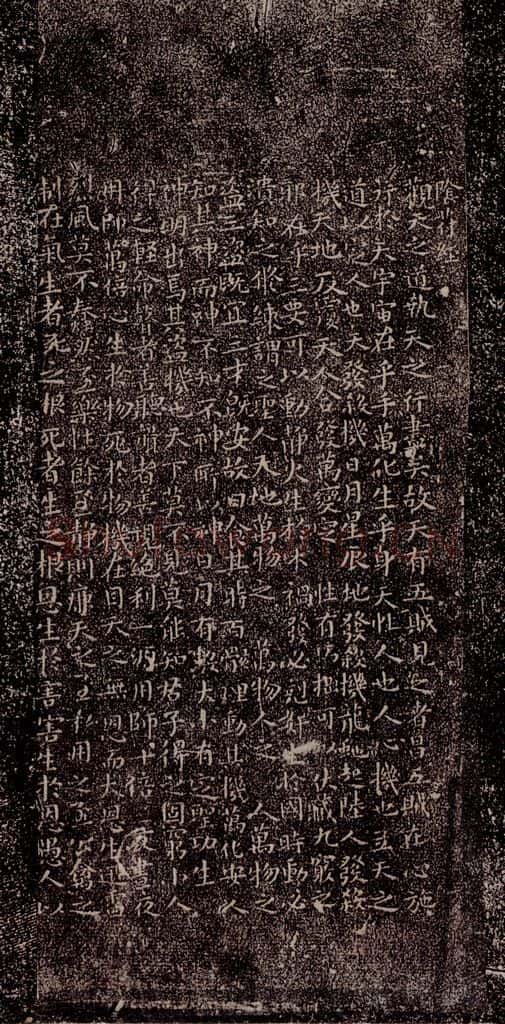 陰符經
觀天之道執天之行盡矣故天有五賊見之者昌五賊在心施
行於天宇宙在乎手萬化生乎身天性人也人心機也立天之
道以定人也天發殺機日月星辰地發殺機龍虵起陸人發殺
機天地反覆天人合發萬變定性有巧拙可以伏藏九竅之
耶在乎三要可以動靜火生於木禍發必剋姧生於國時動必
潰知之修練謂之聖人天地萬物之萬物人之人萬物之
盜三盜既宜三才既安故曰食其時百骸理動其機萬化安人
知其神而神不知不神所以神日月有數大小有定聖功生
神明出焉其盜機也天下莫不見莫能知君子得之固窮小人
得之輕命瞽者善聽聾者善視絕利一源用師十倍反晝夜
用師萬倍心生於物死於物機在目天之無恩而大恩生迅雷
烈風莫不蠢然至樂性餘至靜則廉天之至私用之至公禽之
制在氣生者死之根死者生之根恩生於害害生於恩愚人以